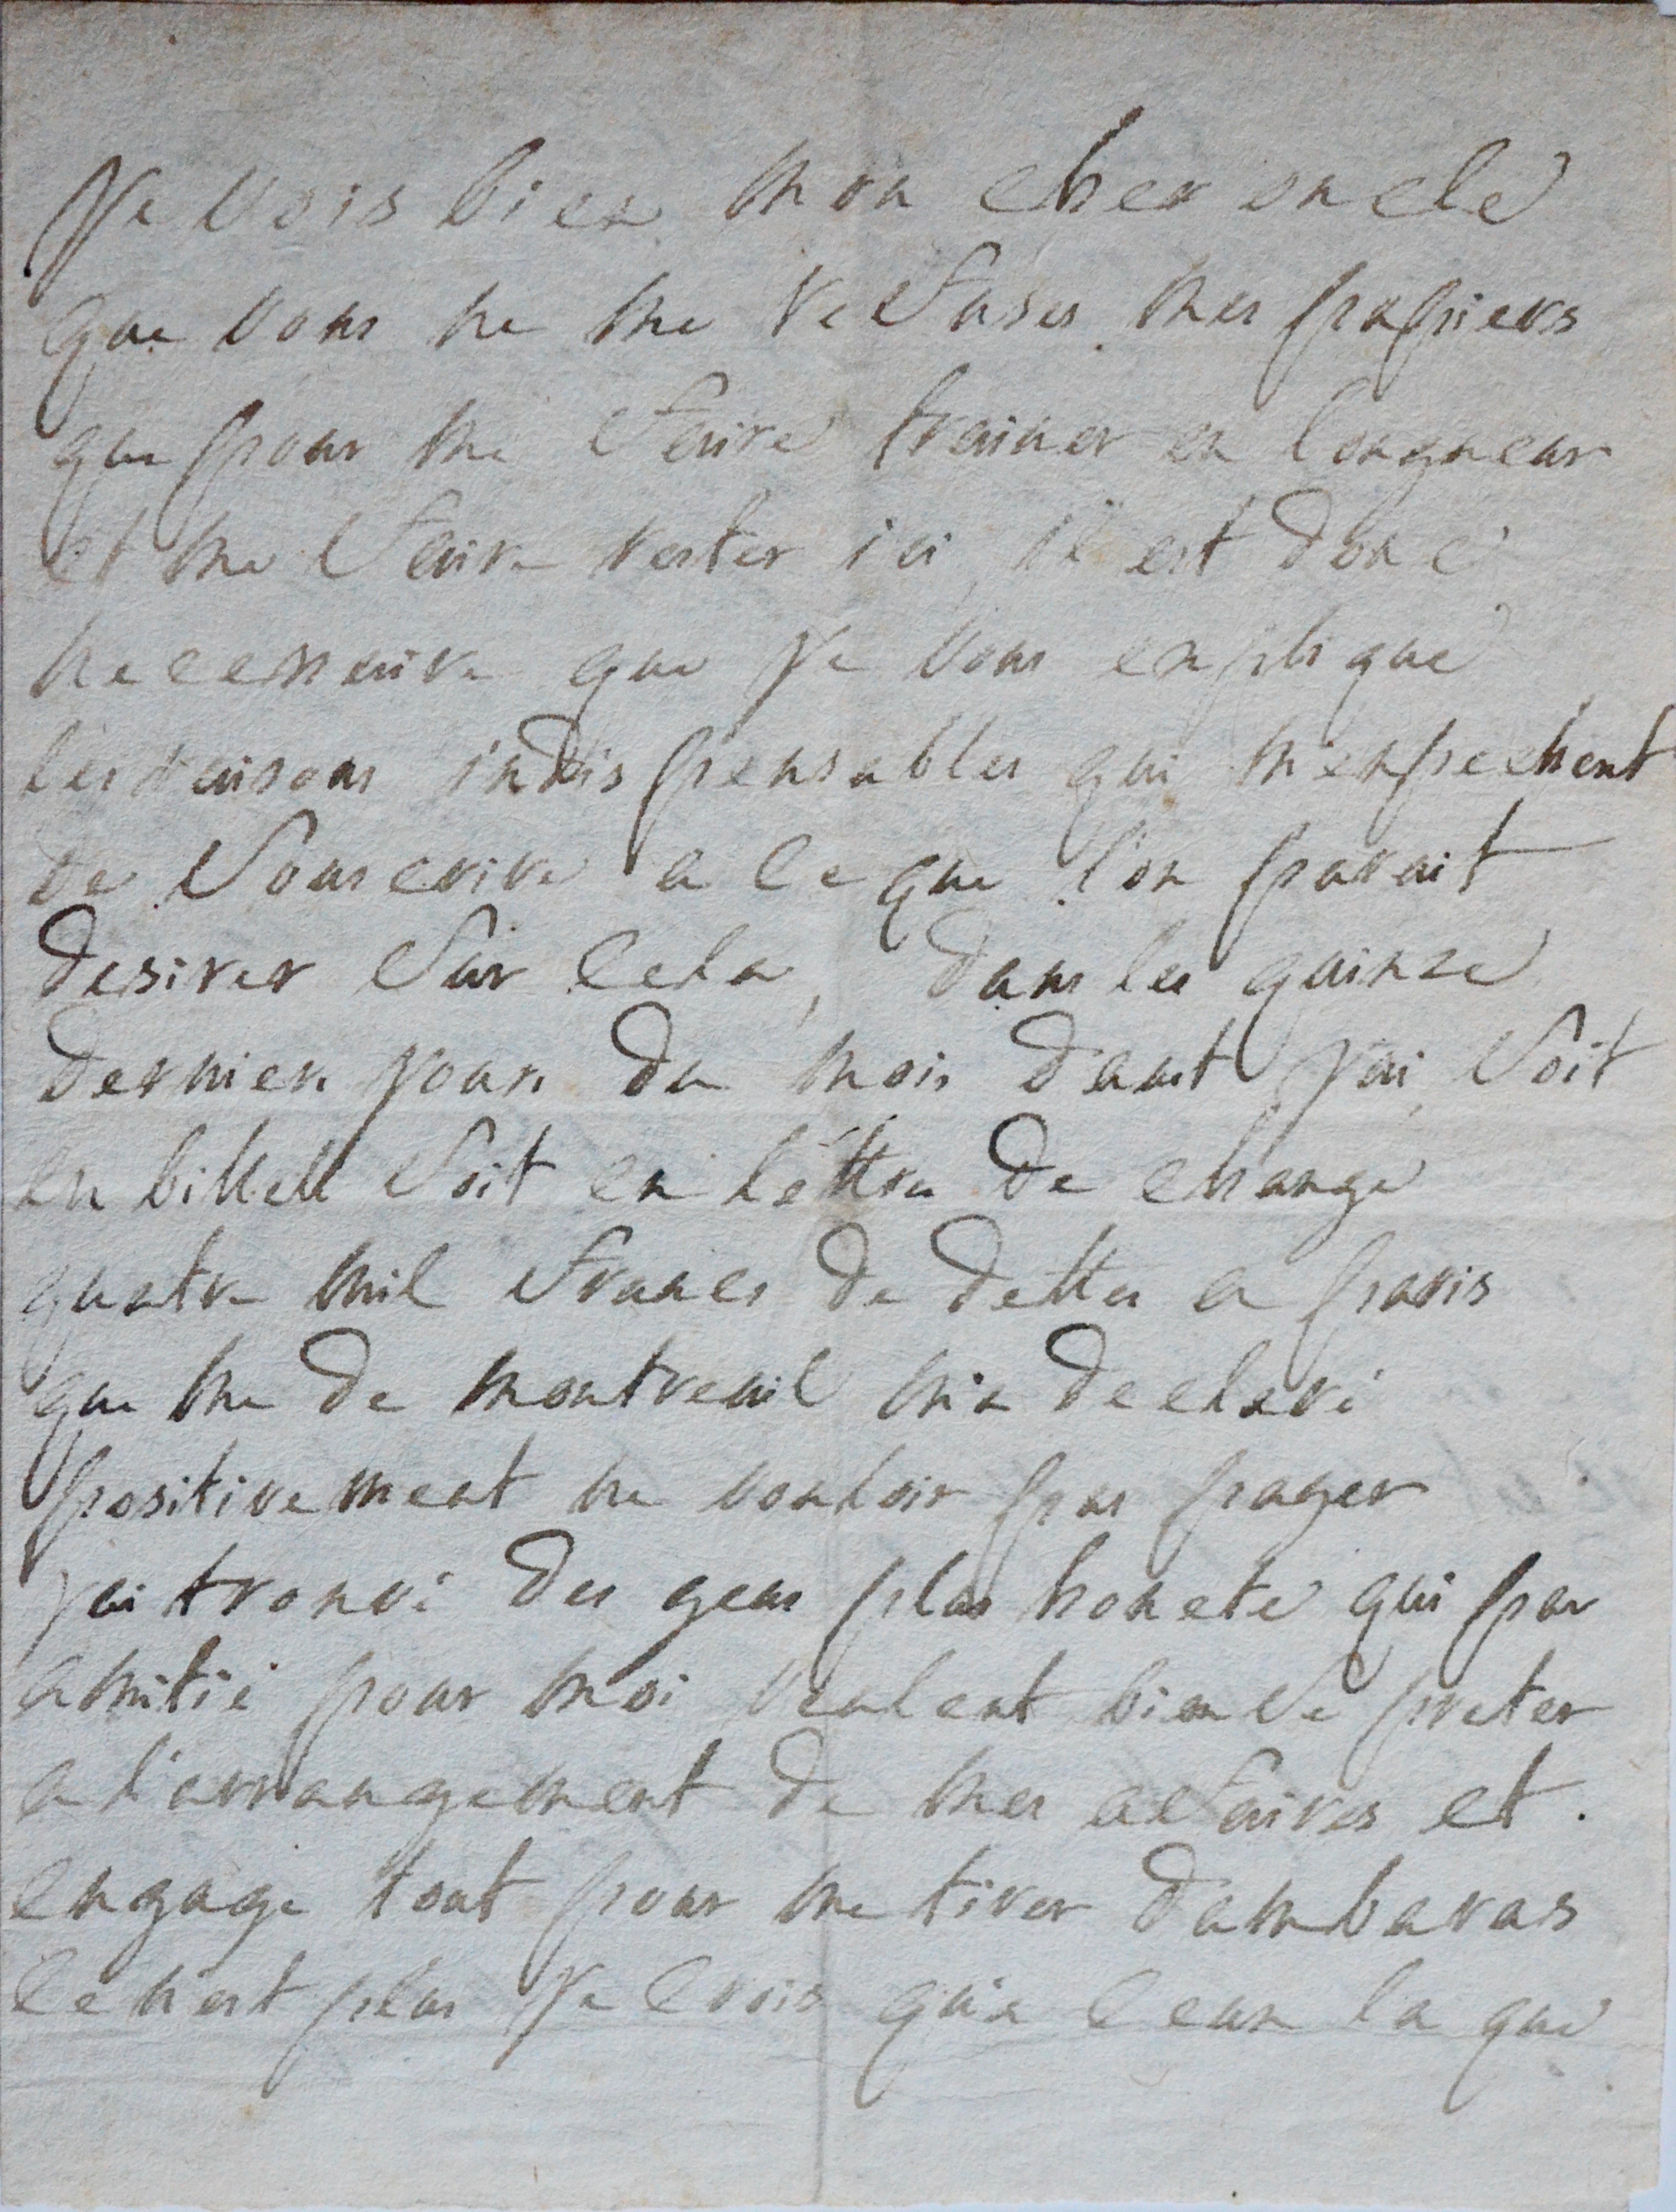 Je vois bien mon cher oncle
que vous ne me refuses mes papiers
que pour me faire trainer en longueur
et me faire rester ici, il est donc
necessaire que je vous explique
les raisons indispensables qui m'enpechent
de souscrire a ce que l'on parait
desirer sur cela, dans les quinze
derniers jours du mois daout j'ai soit
en billets soit en léttres de change
quatre mil francs de dettes a paris
que me de montreuil m'a declaré
positivement ne vouloir pas payer
j'ai trouvé des gens plus honete qui par
amitié pour moi veulent bien se preter
a l'arrangement de mes afaires et
engage tout pour me tirer dambaras
ce n'est plus je crois qu'a ceux la que